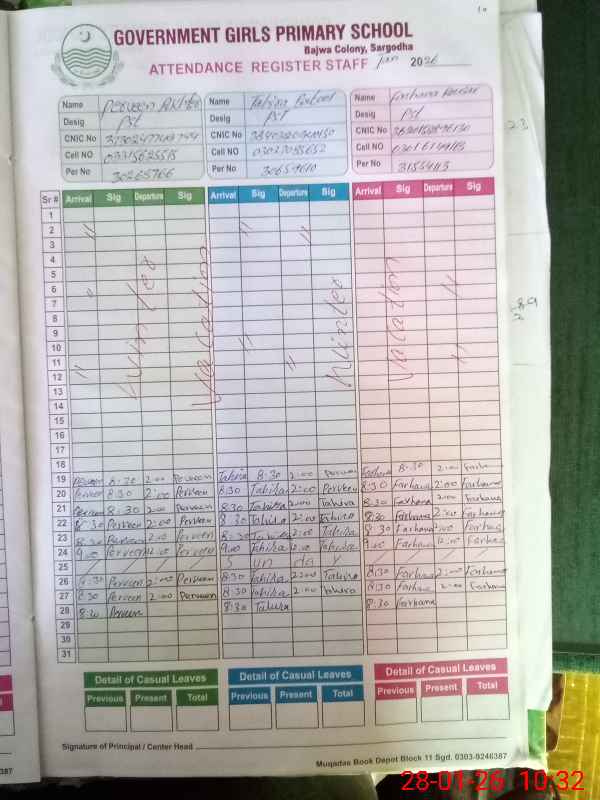 GOVERNMENT GIRLS PRIMARY SCHOOL
Bajwa Colony, Sargodha
ATTENDANCE REGISTER STAFF Jan 2026
Name Perveen Akhter Name Tahira Name Farhana
Desig Pst Desig PST Desig Pst
CNIC No CNIC No CNIC No
Cell NO 03315625515 Cell NO Cell NO
Per No 30265766 Per No 30659610 Per No
Sr # Arrival Sig Departure Sig Arrival Sig Departure Sig Arrival Sig Departure Sig
1
2 " " "
3
4
5
6
7
8
9
10
11
12
13
14
15
16
17
18
Winter Vacation Winter Vacation
19 Perveen 8:30 2:00 Perveen Tahira 8:30 2:00 Perveen Farhana 8:30 2:00 Farhana
20 Perveen 8:30 2:00 Perveen 8:30 Tahira 2:00 Perveen 8:30 Farhana 2:00 Farhana
21 Perveen 8:30 2:00 Perveen 8:30 Tahira 2:00 Tahira 8:30 Farhana 2:00 Farhana
22 8:30 Perveen 2:00 Perveen 8:30 Tahira 2:00 Tahira 8:30 Farhana 2:00 Farhana
23 8:30 Perveen 2:00 Perveen 8:30 Tahira 2:00 Tahira 8:30 Farhana 2:00 Farhana
24 9:00 Perveen 12:00 Perveen 9:00 Tahira 12:00 Tahira 9:00 Farhana 12:00 Farhana
25 Sunday
26 8:30 Perveen 2:00 Perveen 8:30 Tahira 2:00 Tahira 8:30 Farhana 2:00 Farhana
27 8:30 Perveen 2:00 Perveen 8:30 Tahira 2:00 Tahira 8:30 Farhana 2:00 Farhana
28 8:30 Perveen 8:30 Tahira 8:30 Farhana
29
30
31
Detail of Casual Leaves Detail of Casual Leaves Detail of Casual Leaves
Previous Present Total Previous Present Total Previous Present Total
Signature of Principal / Center Head
Muqadas Book Depot Block 11 Sgd. 0303-9246387
387
28-01-26 10:32